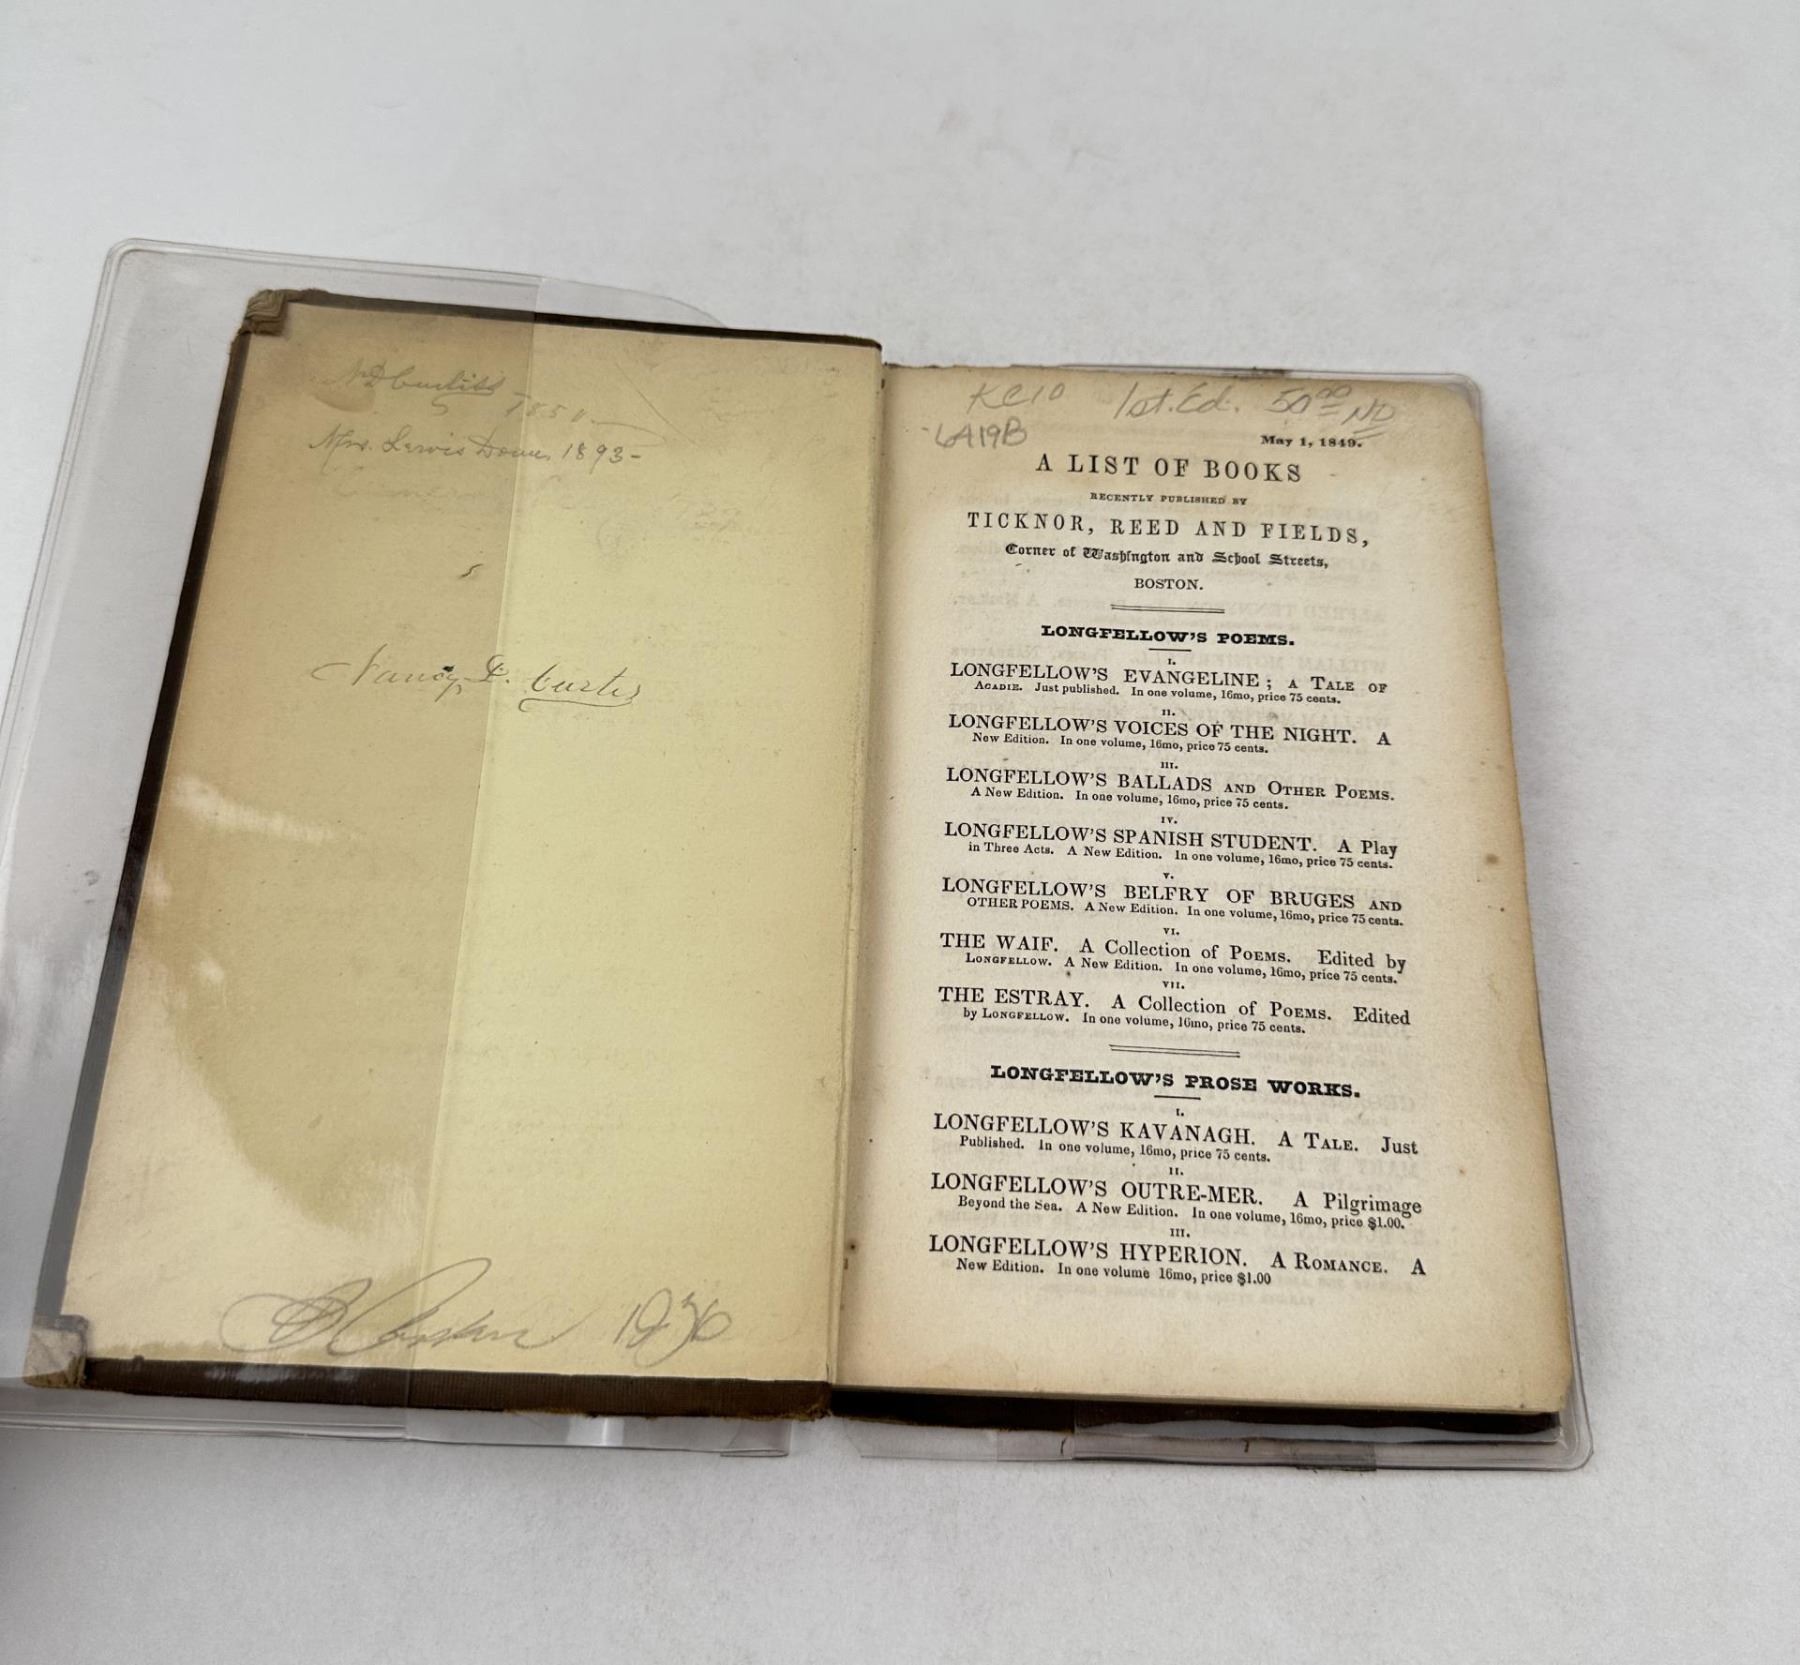 N D Curtiss
1850.
Mrs. Lewis 1893-
Nancy D. Curtis
1936
KC10 1st. Ed. 50.00 ND
6A19B
May 1, 1849.
A LIST OF BOOKS
RECENTLY PUBLISHED BY
TICKNOR, REED AND FIELDS,
Corner of Washington and School Streets,
BOSTON.
LONGFELLOW'S POEMS.
I.
LONGFELLOW'S EVANGELINE; A TALE OF
ACADIE. Just published. In one volume, 16mo, price 75 cents.
II.
LONGFELLOW'S VOICES OF THE NIGHT. A
New Edition. In one volume, 16mo, price 75 cents.
III.
LONGFELLOW'S BALLADS AND OTHER POEMS.
A New Edition. In one volume, 16mo, price 75 cents.
IV.
LONGFELLOW'S SPANISH STUDENT. A Play
in Three Acts. A New Edition. In one volume, 16mo, price 75 cents.
V.
LONGFELLOW'S BELFRY OF BRUGES AND
OTHER POEMS. A New Edition. In one volume, 16mo, price 75 cents.
VI.
THE WAIF. A Collection of POEMS. Edited by
LONGFELLOW. A New Edition. In one volume, 16mo, price 75 cents.
VII.
THE ESTRAY. A Collection of POEMS. Edited
by LONGFELLOW. In one volume, 16mo, price 75 cents.
LONGFELLOW'S PROSE WORKS.
I.
LONGFELLOW'S KAVANAGH. A TALE. Just
Published. In one volume, 16mo, price 75 cents.
II.
LONGFELLOW'S OUTRE-MER. A Pilgrimage
Beyond the Sea. A New Edition. In one volume, 16mo, price $1.00.
III.
LONGFELLOW'S HYPERION. A ROMANCE. A
New Edition. In one volume 16mo, price $1.00